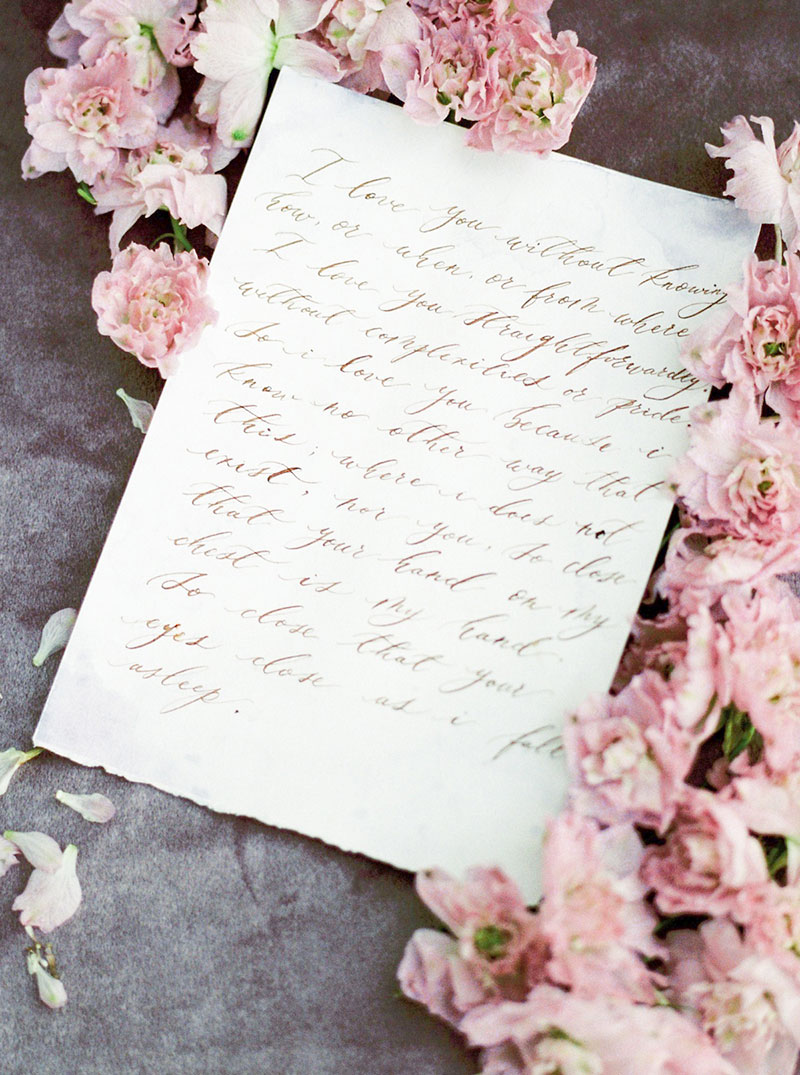 I love you without knowing
how, or when, or from where
I love you straightforwardly.
without complexities or pride.
So i love you because i
know no other way that
this; where i does not
exist, nor you, so close
that your hand on my
chest is my hand.
So close that your
eyes close as i fall
asleep.